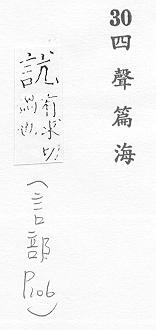 30四聲篇海
訧
有求切
(言部 P106)